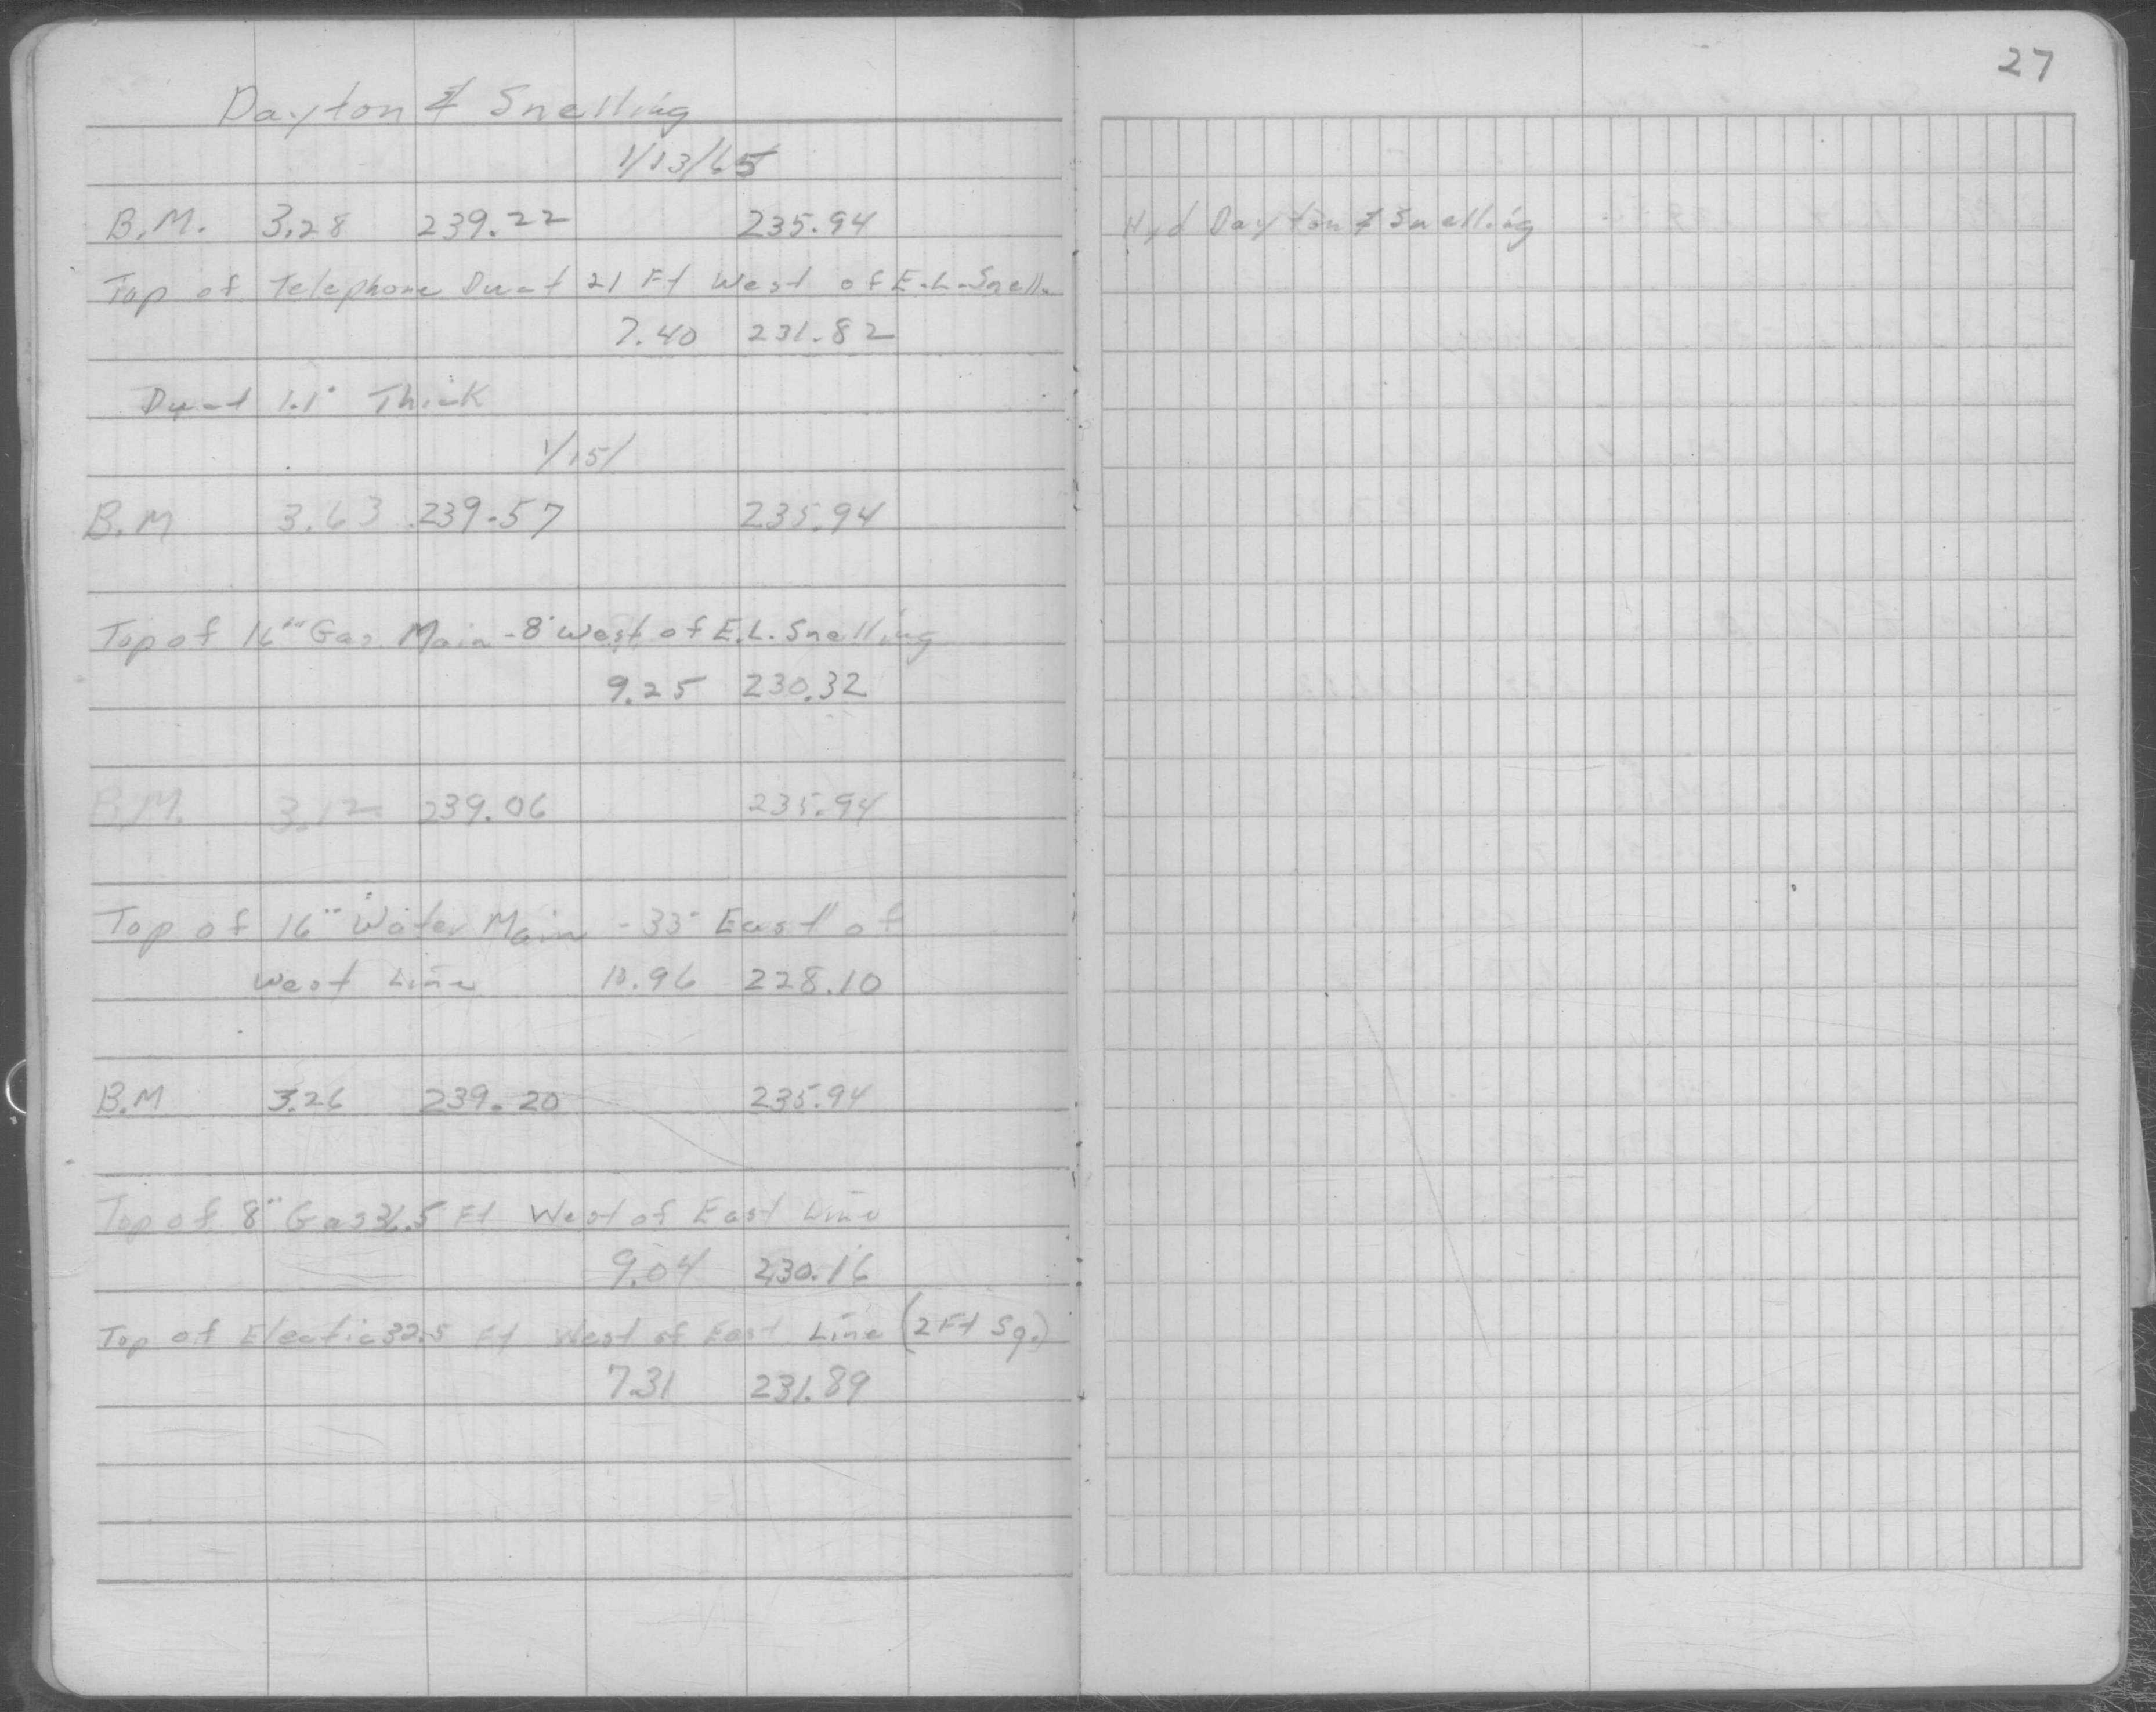 Dayton & Snelling
1/13/65
B.M. 3.28 239.22 235.94
Top of Telephone Duct 21 Ft West of E.L. Snell.
7.40 231.82
Duct 1.1' Thick
1/15/
B.M 3.63 239.57 235.94
Top of 16" Gas Main - 8' West of E.L. Snelling
9.25 230.32
B.M. 3.12 239.06 235.94
Top of 16" Water Main - 33' East of
West Line 10.96 228.10
B.M 3.26 239.20 235.94
Top of 8" Gas 36.5 Ft West of East Line
9.04 230.16
Top of Electic 32.5 Ft West of East Line (2 Ft Sq.)
7.31 231.89
27
Hyd Dayton & Snelling